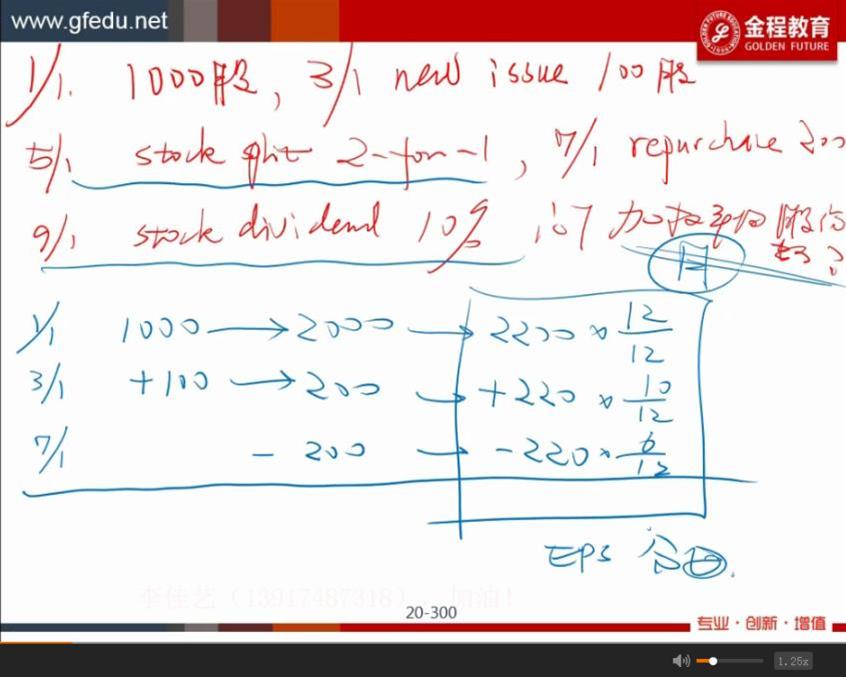 www.gfedu.net
金程教育
GOLDEN FUTURE
1/1. 1000股, 3/1 new issue 100股
5/1 stock split 2-for-1, 7/1 repurchase 200
9/1 stock dividend 10%, 问加权平均股份
数?
1/1 1000 → 2000 → 2200 × 12/12
3/1 +100 → 200 → +220 × 10/12
7/1 - 200 → -220 × 6/12
EPS 分母.
李佳艺（13917487318），加油！
20-300
专业·创新·增值
1.25x